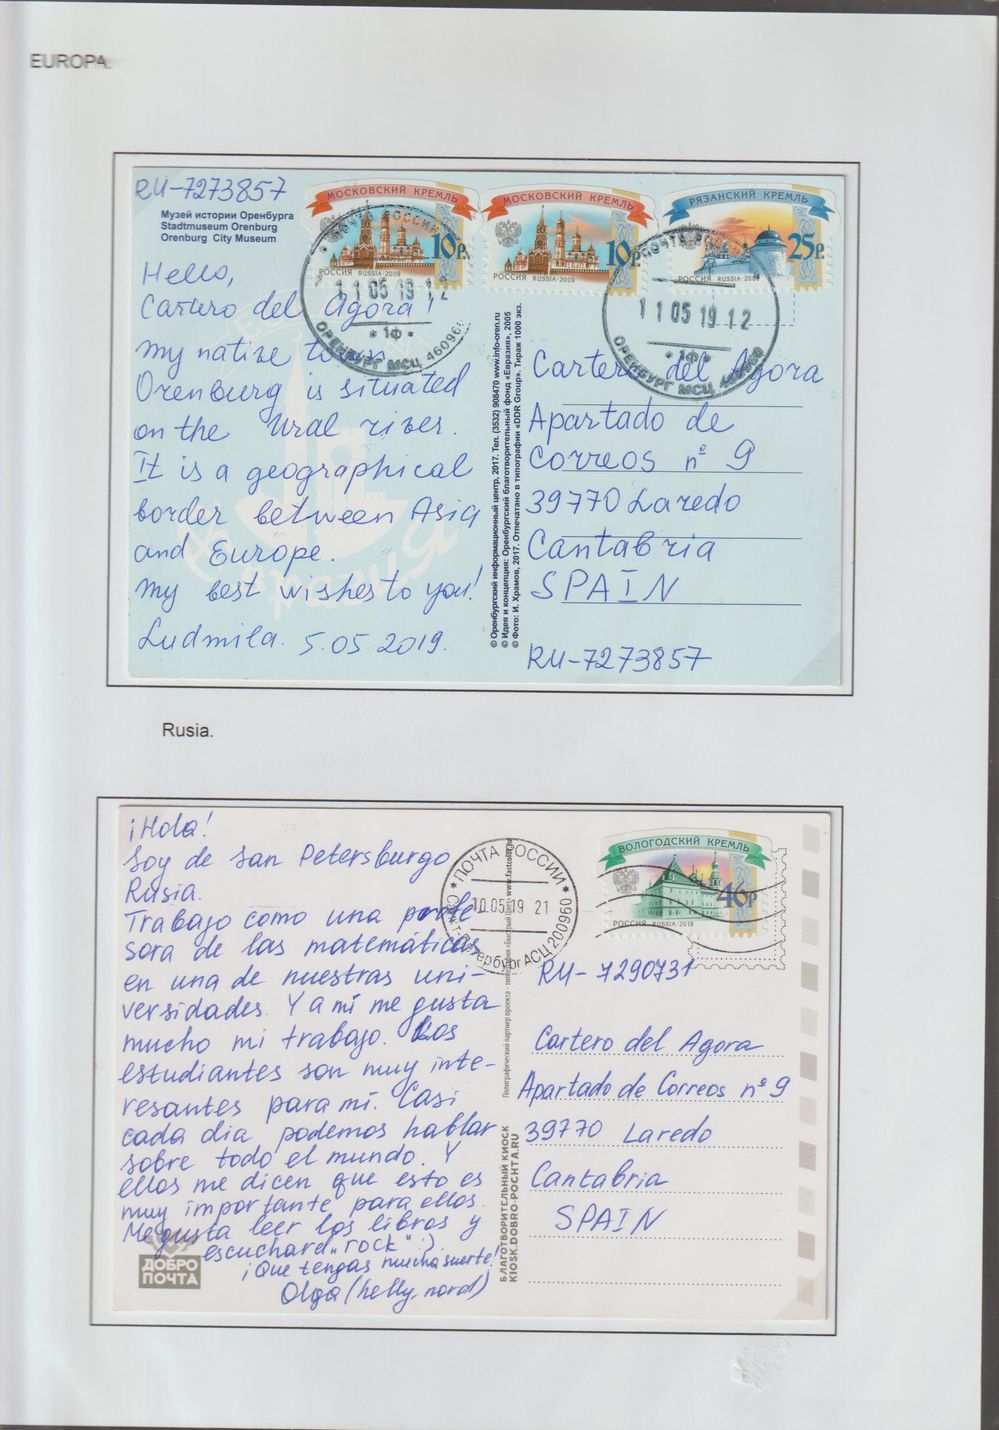 EUROPA.
RU-7273857
Музей истории Оренбурга
Stadtmuseum Orenburg
Orenburg City Museum
МОСКОВСКИЙ КРЕМЛЬ
10р.
РОССИЯ RUSSIA·2009
МОСКОВСКИЙ КРЕМЛЬ
10р.
РОССИЯ RUSSIA·2009
РЯЗАНСКИЙ КРЕМЛЬ
25р.
РОССИЯ RUSSIA
ПОЧТА РОССИИ
11 05 19 12
* 1ф *
ОРЕНБУРГ МСЦ 460960
ПОЧТА
11 05 19 12
* 1ф *
ОРЕНБУРГ МСЦ 460960
Hello,
Cartero del Agora!
My native town
Orenburg is situated
on the Ural river.
It is a geographical
border between Asia
and Europe.
My best wishes to you!
Ludmila. 5.05.2019.
© Оренбургский информационный центр, 2017. Тел. (3532) 908470 www.info-oren.ru
© Идея и концепция: Оренбургский благотворительный фонд «Евразия», 2005
© Фото: И. Храмов, 2017. Отпечатано в типографии «DDR Group». Тираж 1000 экз.
Cartero del Agora
Apartado de
Correos nº 9
39770 Laredo
Cantabria
SPAIN
RU-7273857
Rusia.
¡Hola!
Soy de San Petersburgo
Rusia.
Trabajo como una profe-
sora de las matemáticas
en una de nuestras uni-
versidades. Y a mí me gusta
mucho mi trabajo. Los
estudiantes son muy inte-
resantes para mí. Casi
cada dia podemos hablar
sobre todo el mundo. Y
ellos me dicen que esto es
muy importante para ellos.
Me gusta leer los libros y
escuchar el „rock" :)
¡Que tengas mucha suerte!
Olga (helly_nord)
ДОБРО
ПОЧТА
ПОЧТА РОССИИ
10.05.19 21
Санкт-Петербург АСЦ 200960
ВОЛОГОДСКИЙ КРЕМЛЬ
46р
РОССИЯ RUSSIA·2018
Полиграфический партнер проекта - типография «Быстрый Цвет» www.fastcolor.ru
БЛАГОТВОРИТЕЛЬНЫЙ КИОСК
KIOSK.DOBRO-POCHTA.RU
RU-7290731
Cartero del Agora
Apartado de Correos nº 9
39770 Laredo
Cantabria
SPAIN